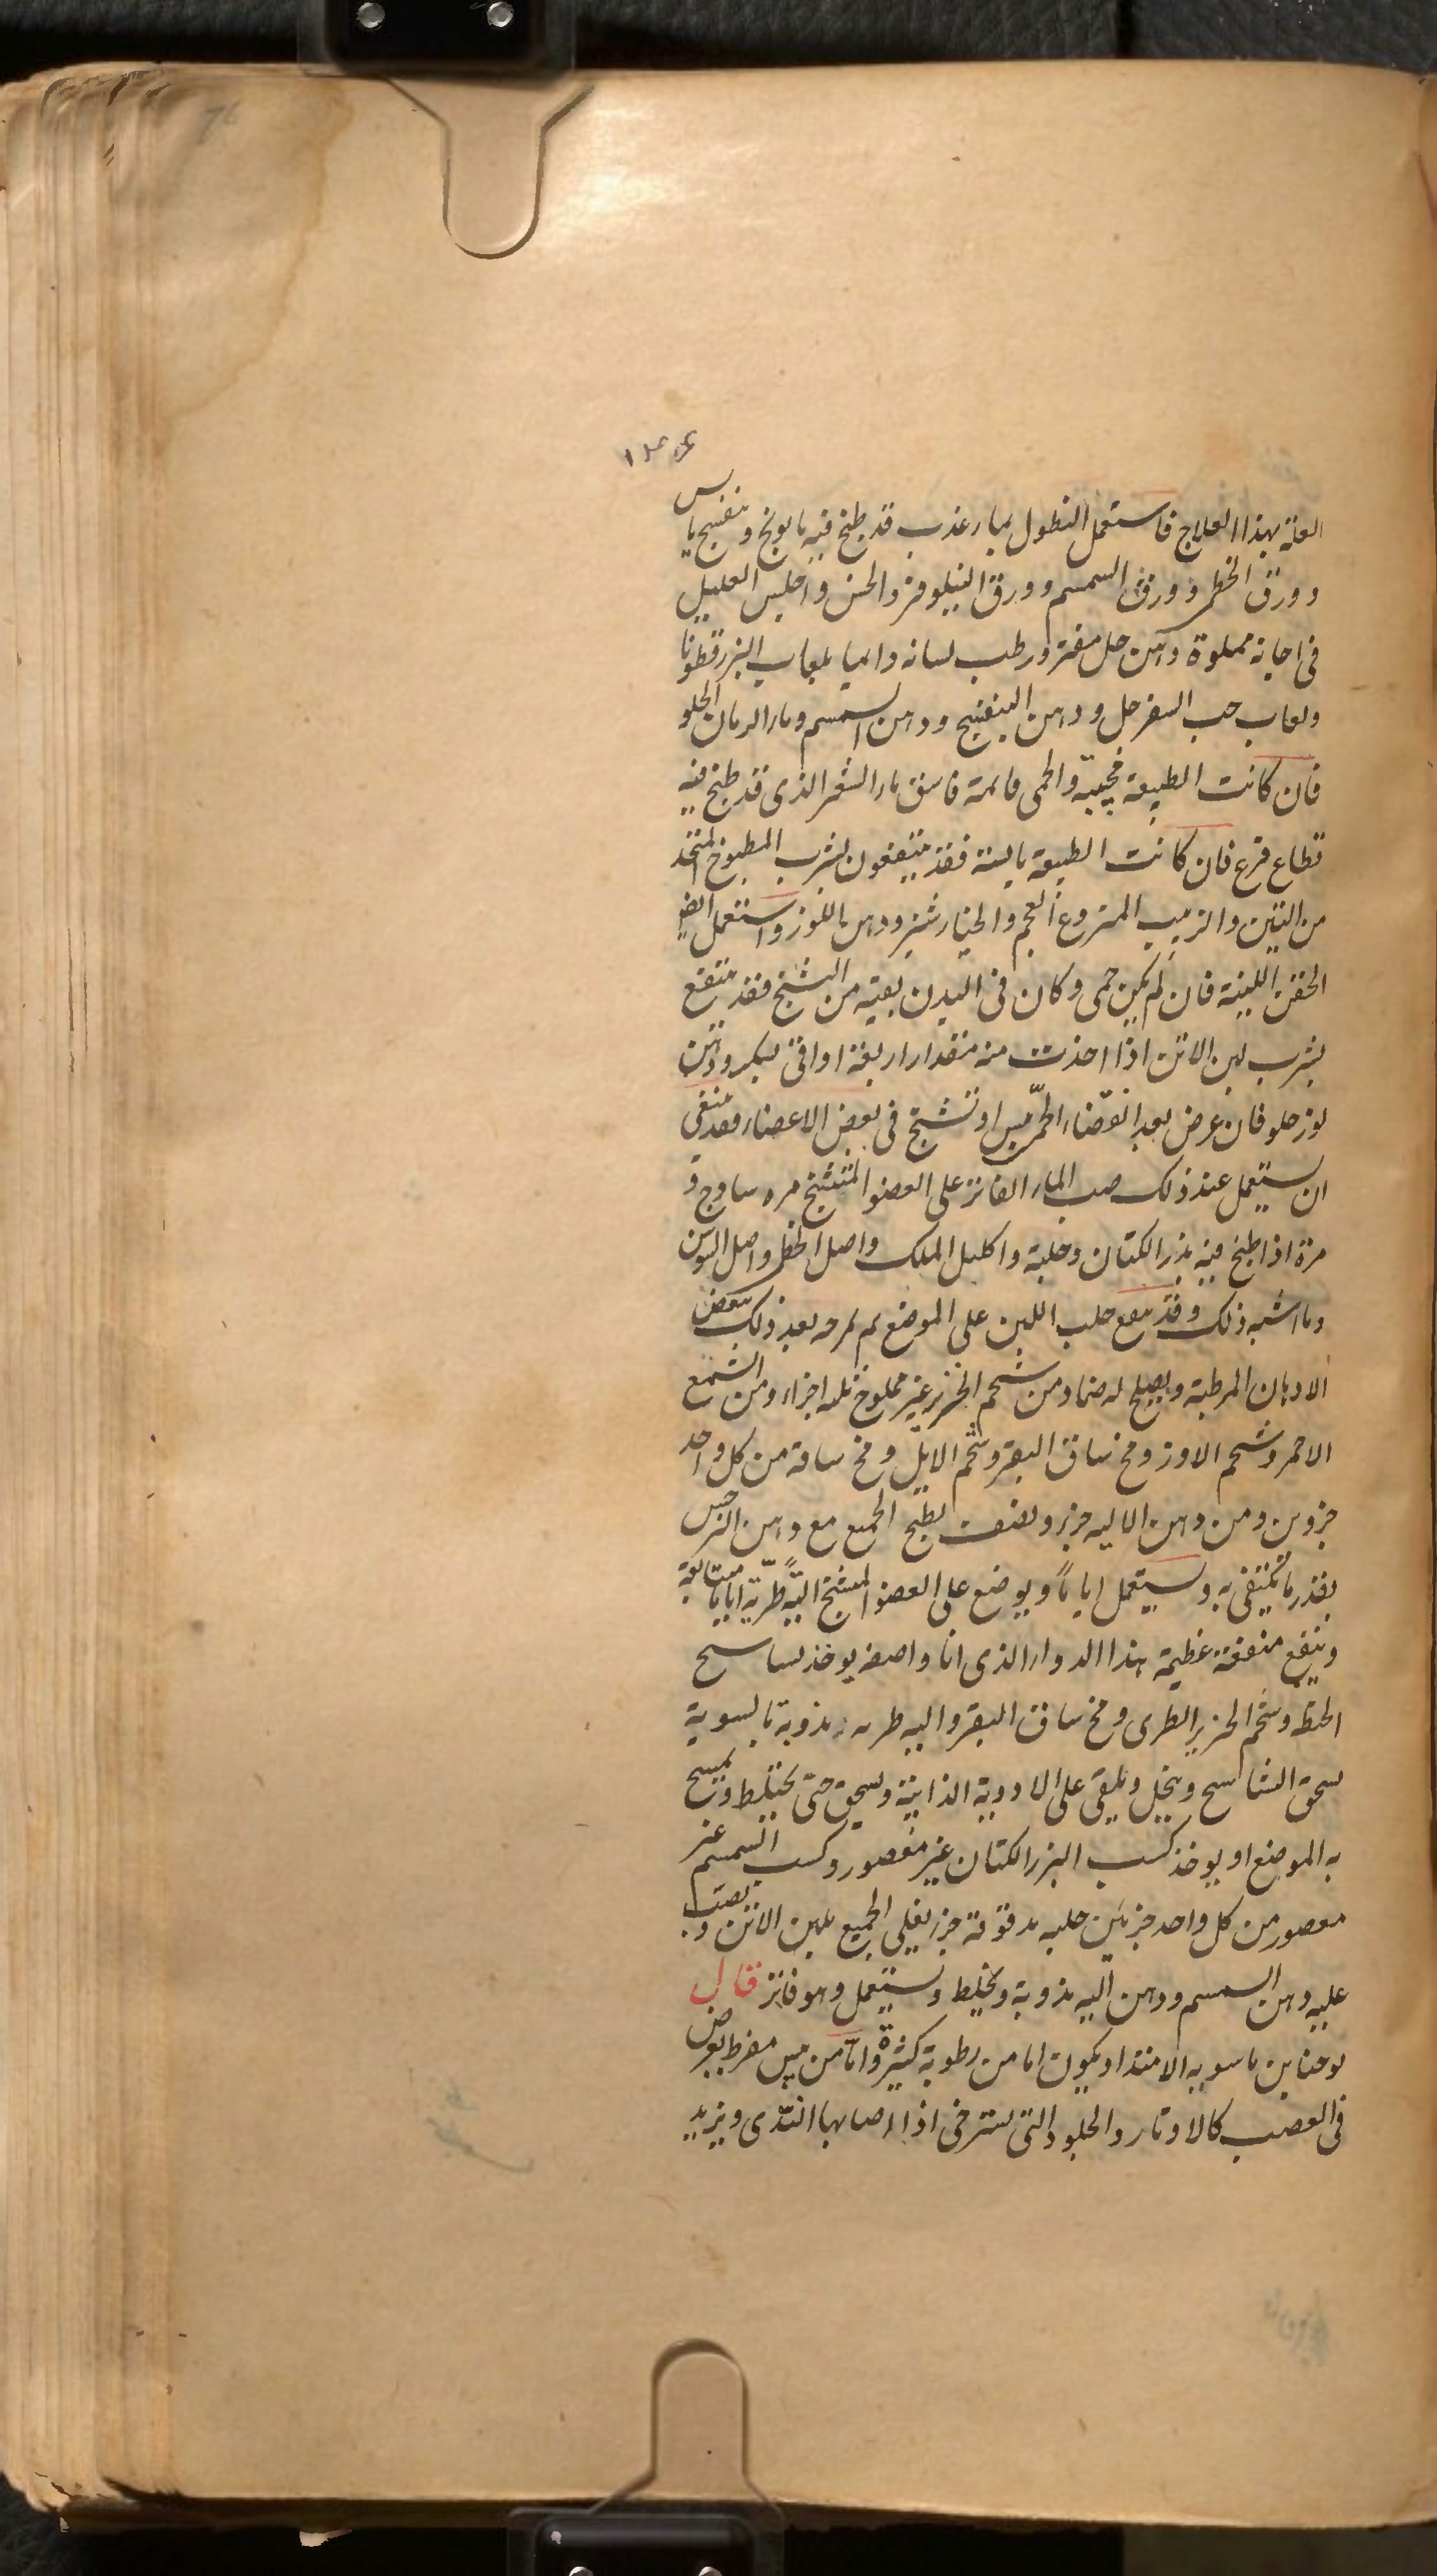 العلة بهذا العلاج فاستعمل النطول بماء عذب قد طبخ فيه بابونج وبنفسج يابس
وورق الخطمى وورق السمسم وورق النيلوفر والخس واجلس العليل
فى اجانة مملوة دهن حل مفتر ورطب لسانه دائما بلعاب البزرقطونا
ولعاب حب السفرجل ودهن البنفسج ودهن السمسم وماء الرمان الحلو
فان كانت الطبيعة مجيبة والحمى قائمة فاسق ماء الشعير الذى قد طبخ فيه
قطاع قرع فان كانت الطبيعة يابسة فقد ينتفعون بشرب المطبوخ المتخذ
من التين والزبيب المنزوع العجم والخيارشنبر ودهن اللوز واستعمل ايضا
الحقن اللينة فان لم يكن حمى وكان فى البدن بقية من التشنج فقد ينتفع
بشرب لبن الاتن اذا اخذت منه مقدار اربعة اواقى بسكر ودهن
لوز حلو فان عرض بعد انقضاء الحمى يبس او تشنج فى بعض الاعضاء فقد ينبغى
ان يستعمل عند ذلك صب الماء الفاتر على العضو المتشنج مره ساذج و
مرة اذا طبخ فيه بزر الكتان وحلبة واكليل الملك واصل الخطمى واصل السوسن
وما اشبه ذلك وقد ينفع حلب اللبن على الموضع ثم تمرخه بعد ذلك ببعض
الادهان المرطبة ويصلح له ضماد من شحم الخنزير غير مملوح ثلثه اجزاء ومن الشمع
الاحمر وشحم الاوز ومخ ساق البقر وشحم الايل ومخ ساقه من كل واحد
جزوين ومن دهن الاليه جزء ونصف يطبخ الجميع مع دهن النرجس
بقدر ما يكتفى به ويستعمل اياما ويوضع على العضو المتشنج الية طرية اياما متتابعة
وينفع منفعة عظيمة هذا الدواء الذى انا واصفه يوخذ نشاسج
الحنطة وشحم الخنزير الطرى ومخ ساق البقر والية طريه مذوبة بالسوية
يسحق النشاسج وينخل ويلقى على الادوية الذائبة ويسحق حتى يختلط ويمسح
به الموضع او يوخذ كسب البزر الكتان غير معصور وكسب السمسم غير
معصور من كل واحد جزئين حلبه مدقوقة جزء يغلى الجميع بلبن الاتن ويصب
عليه دهن السمسم ودهن اليه مذوبة ويخلط ويستعمل وهو فاتر قال
يوحنا بن ماسويه الامتداد يكون اما من رطوبة كثيرة واما من يبس مفرط يعرض
فى العصب كالاوتار والجلود التى تسترخى اذا اصابها الندى ويزيد